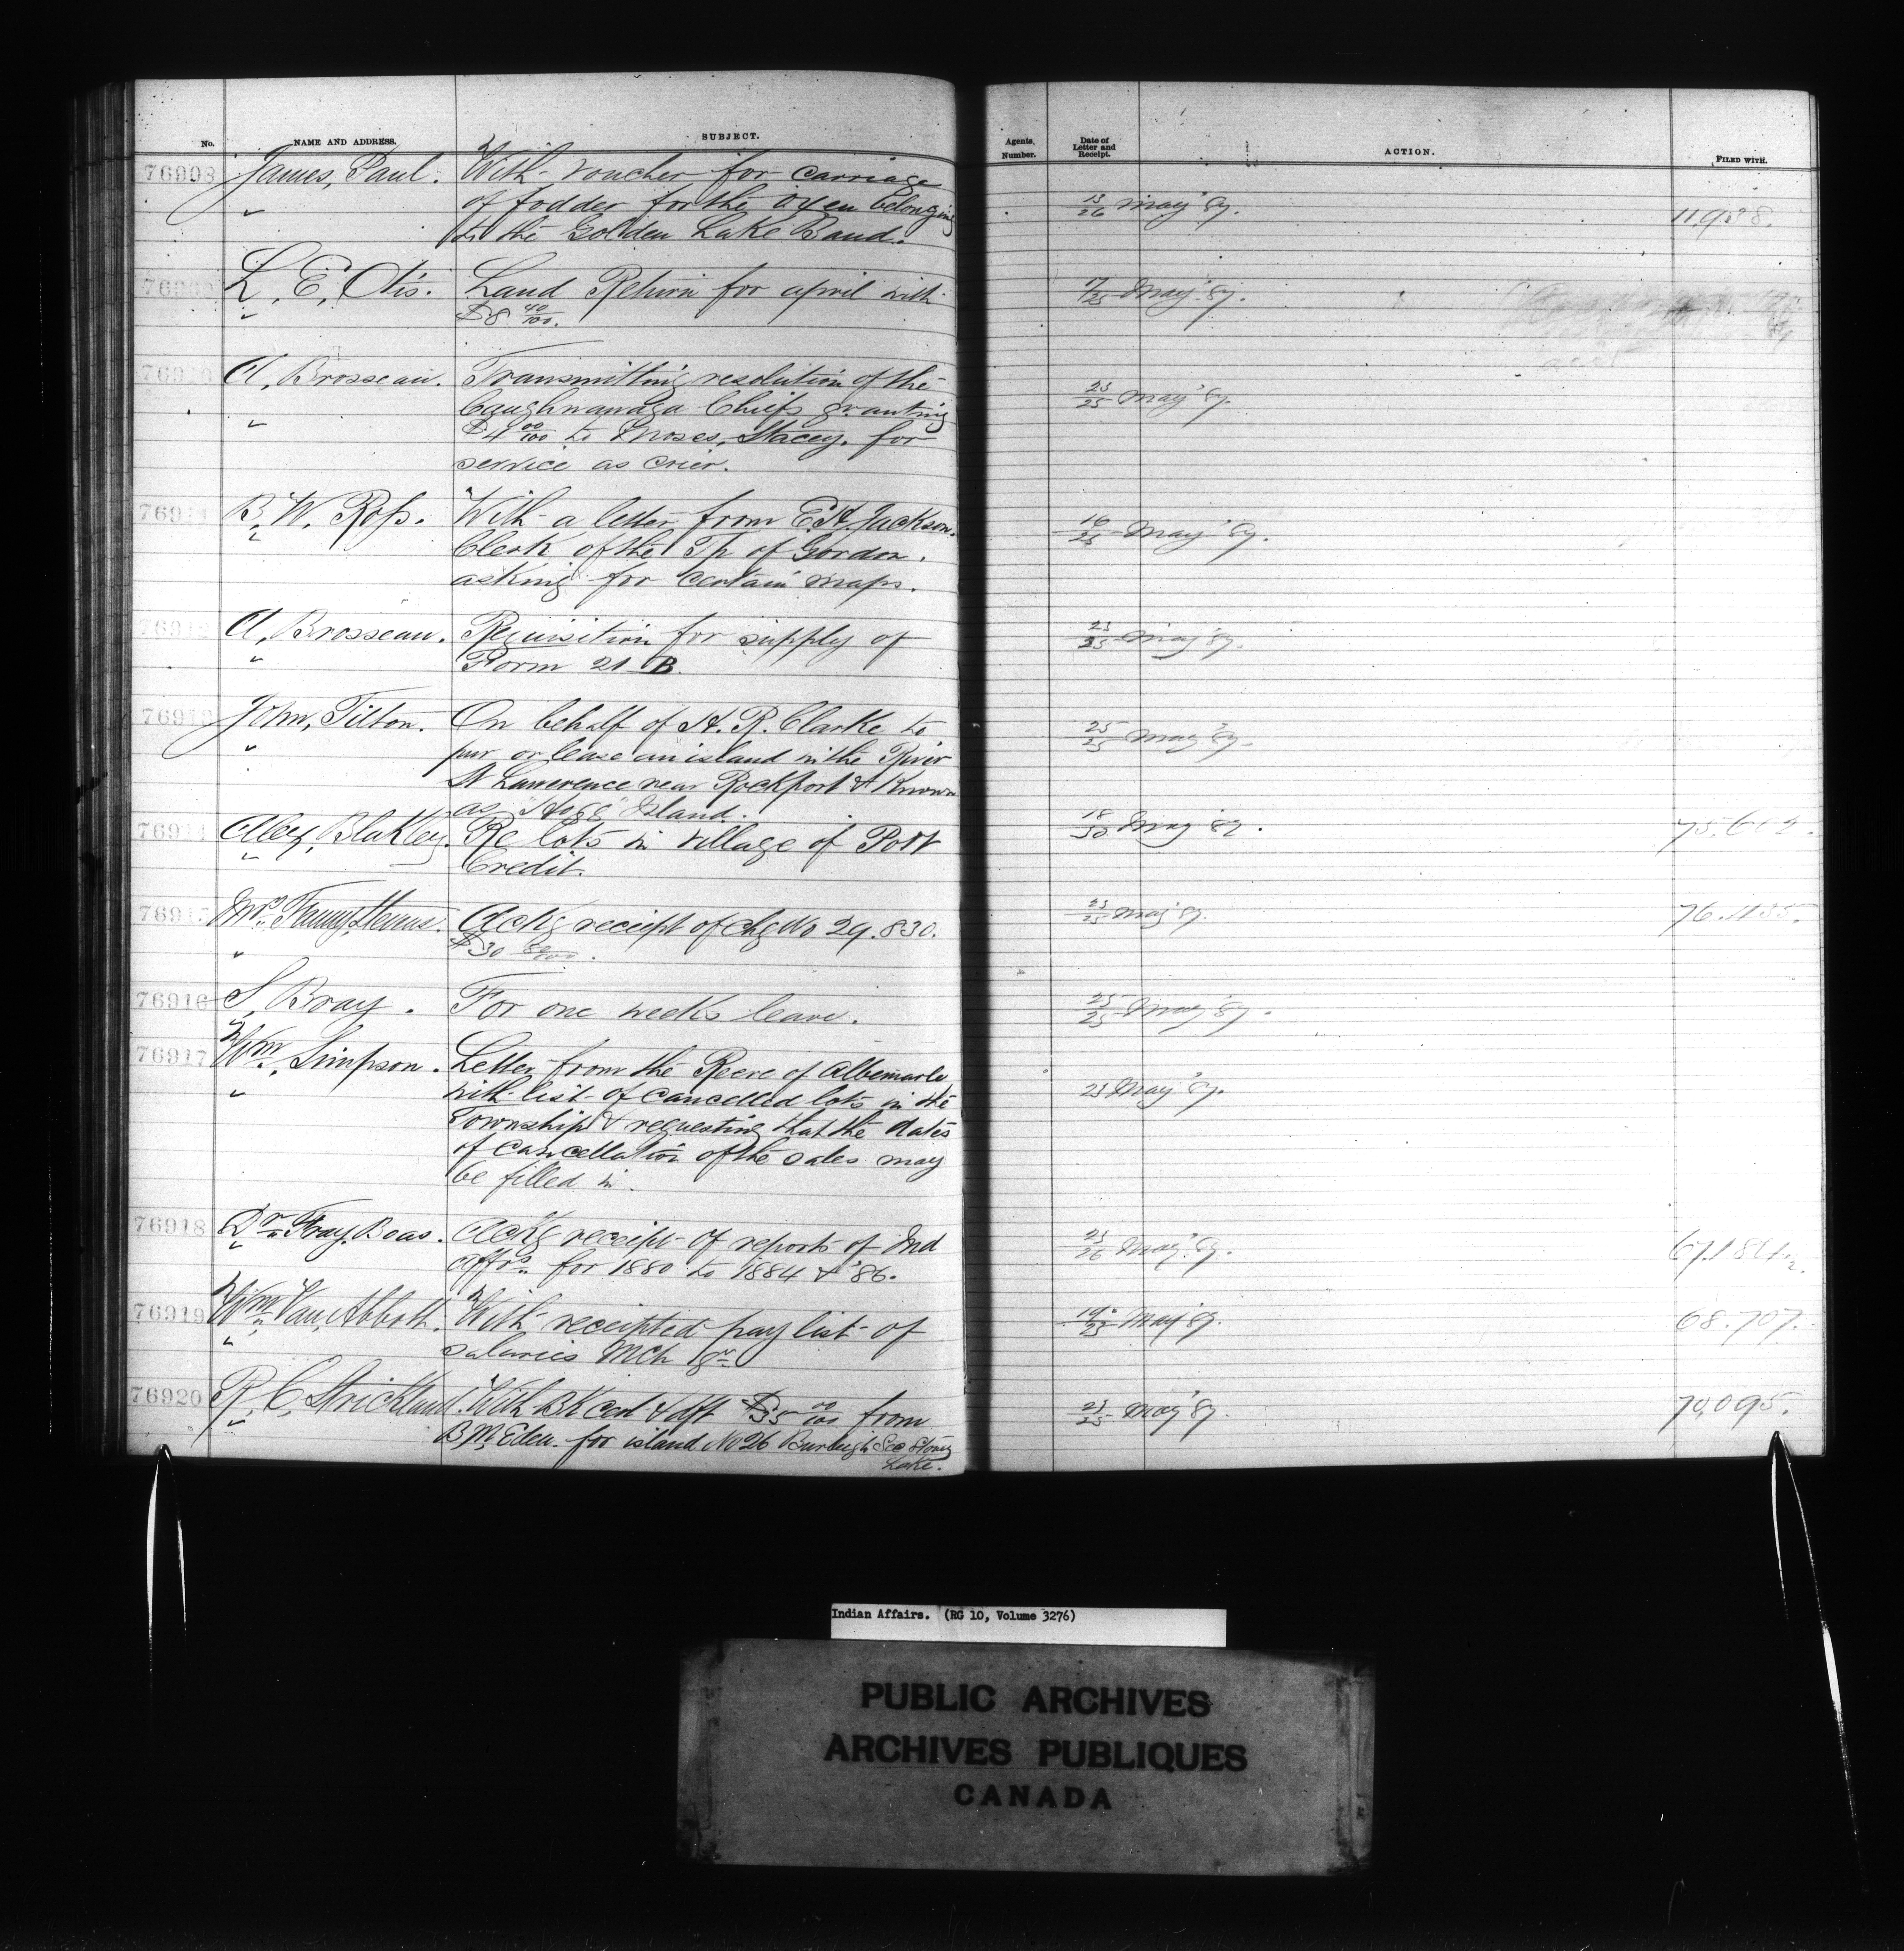 No. NAME AND ADDRESS. SUBJECT. Agents, Number. Date of Letter and Receipt. ACTION. FILED WITH.
76908 James, Paul. With voucher for carriage
" of fodder for the oxen belonging 13/26 May '87.
to the Golden Lake Band.
L. E. Otis. Land Return for april with 17/25 May '87.
" $8 40/100.
A. Brosseau. Transmitting resolution of the
" Caughnawaga Chiefs granting 23/25 May '87.
$4 00/100 to Moses, Stacey. for
service as crier.
76911 B. W. Ross. With a letter from E. A. Jackson. 16/25 May '87.
" Clerk of the Tp of Gordon.
asking for certain maps.
76912 A. Brosseau. Requisition for supply of 23/25 May '87.
" Form 21 B.
76913 John, Tilton. On behalf of H. R. Clarke to 25/25 May '87.
" pur or lease an island in the River
St Lawrence near Rockport & Known
as Island.
76914 Alex, Blakley. Re lots in village of Port 18/ May '87. 75,602.
" Credit.
76915 Mrs. Fanny Stevens. Ackg receipt of chq No 29.830. 23/25 May '87. 76.1135.
" $30 80/100.
76916 S. Bray. For one weeks leave. 25/25 May '87.
76917 Wm. Simpson. Letter from the Reeve of Albemarle
" with list of cancelled lots in the 25 May '87.
Township & requesting that the dates
of cancellation of the sales may
be filled in.
76918 Dr. Franz Boas. Ackg receipt of reports of Ind 25/26 May '87.
" affrs. for 1880 to 1884 & '86.
76919 Wm. Van, Abbott. With receipted pay list of 19/25 May '87. 68.707.
" salaries Mch Qr
76920 R. C. Strickland. With BK Cert & dft $35 00/100 from 23/25 May '87. 70,095.
" B. M. Eden. for island No 26 Burleigh See Stony
Lake.
Indian Affairs. (RG 10, Volume 3276)
PUBLIC ARCHIVES
ARCHIVES PUBLIQUES
CANADA